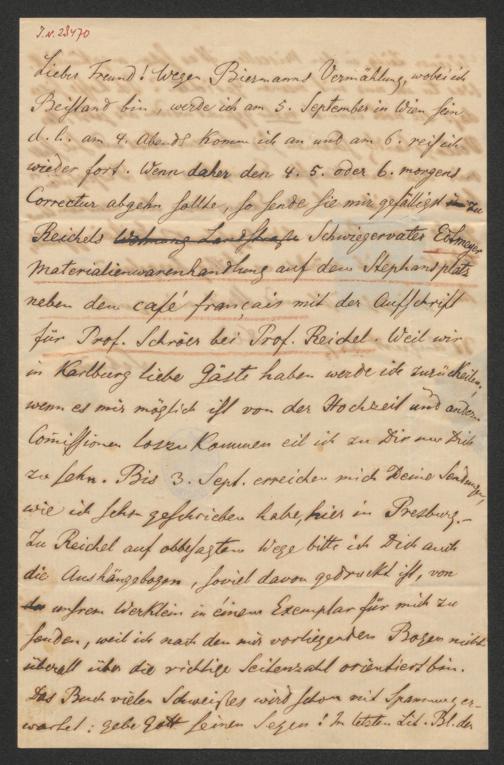 J.N. 23470
Lieber Freund! Wegen Biermanns Vermählung, wobei ich
Beistand bin, werde ich am 5. September in Wien sein
d. i. am 4. Abends komm ich an und am 6. reis ich
wieder fort. Wenn daher den 4. 5. oder 6. morgens
Correctur abgehn sollte, so sende sie mir gefälligst in zu
Reichels Wohnung Landstraße Schwiegervater
Materialienwarenhandlung auf dem Stephansplatz
neben dem café français mit der Aufschrift
für Prof. Schröer bei Prof. Reichel. Weil wir
in Karlburg liebe Gäste haben werde ich zurückeilen,
wenn es mir möglich ist von der Hochzeit und andern
Com̄issionen loszukommen eil ich zu Dir um Dich
zu sehn. Bis 3. Sept. erreichen mich Deine Sendungen,
wie ich schon geschrieben habe, hier in Presburg.–
Zu Reichel auf obbesagtem Wege bitte ich Dich auch
die Aushängebogen, soviel davon gedruckt ist, von
unsrem Werklein in einem Exemplar für mich zu
senden, weil ich nach den mir vorliegenden Bogen nicht
überall über die richtige Seitenzahl orientiert bin.
Das Buch vielen Schweißes wird schon mit Spannung er-
wartet: gebe Gott seinen Segen! In letzten Lit. Bl. der